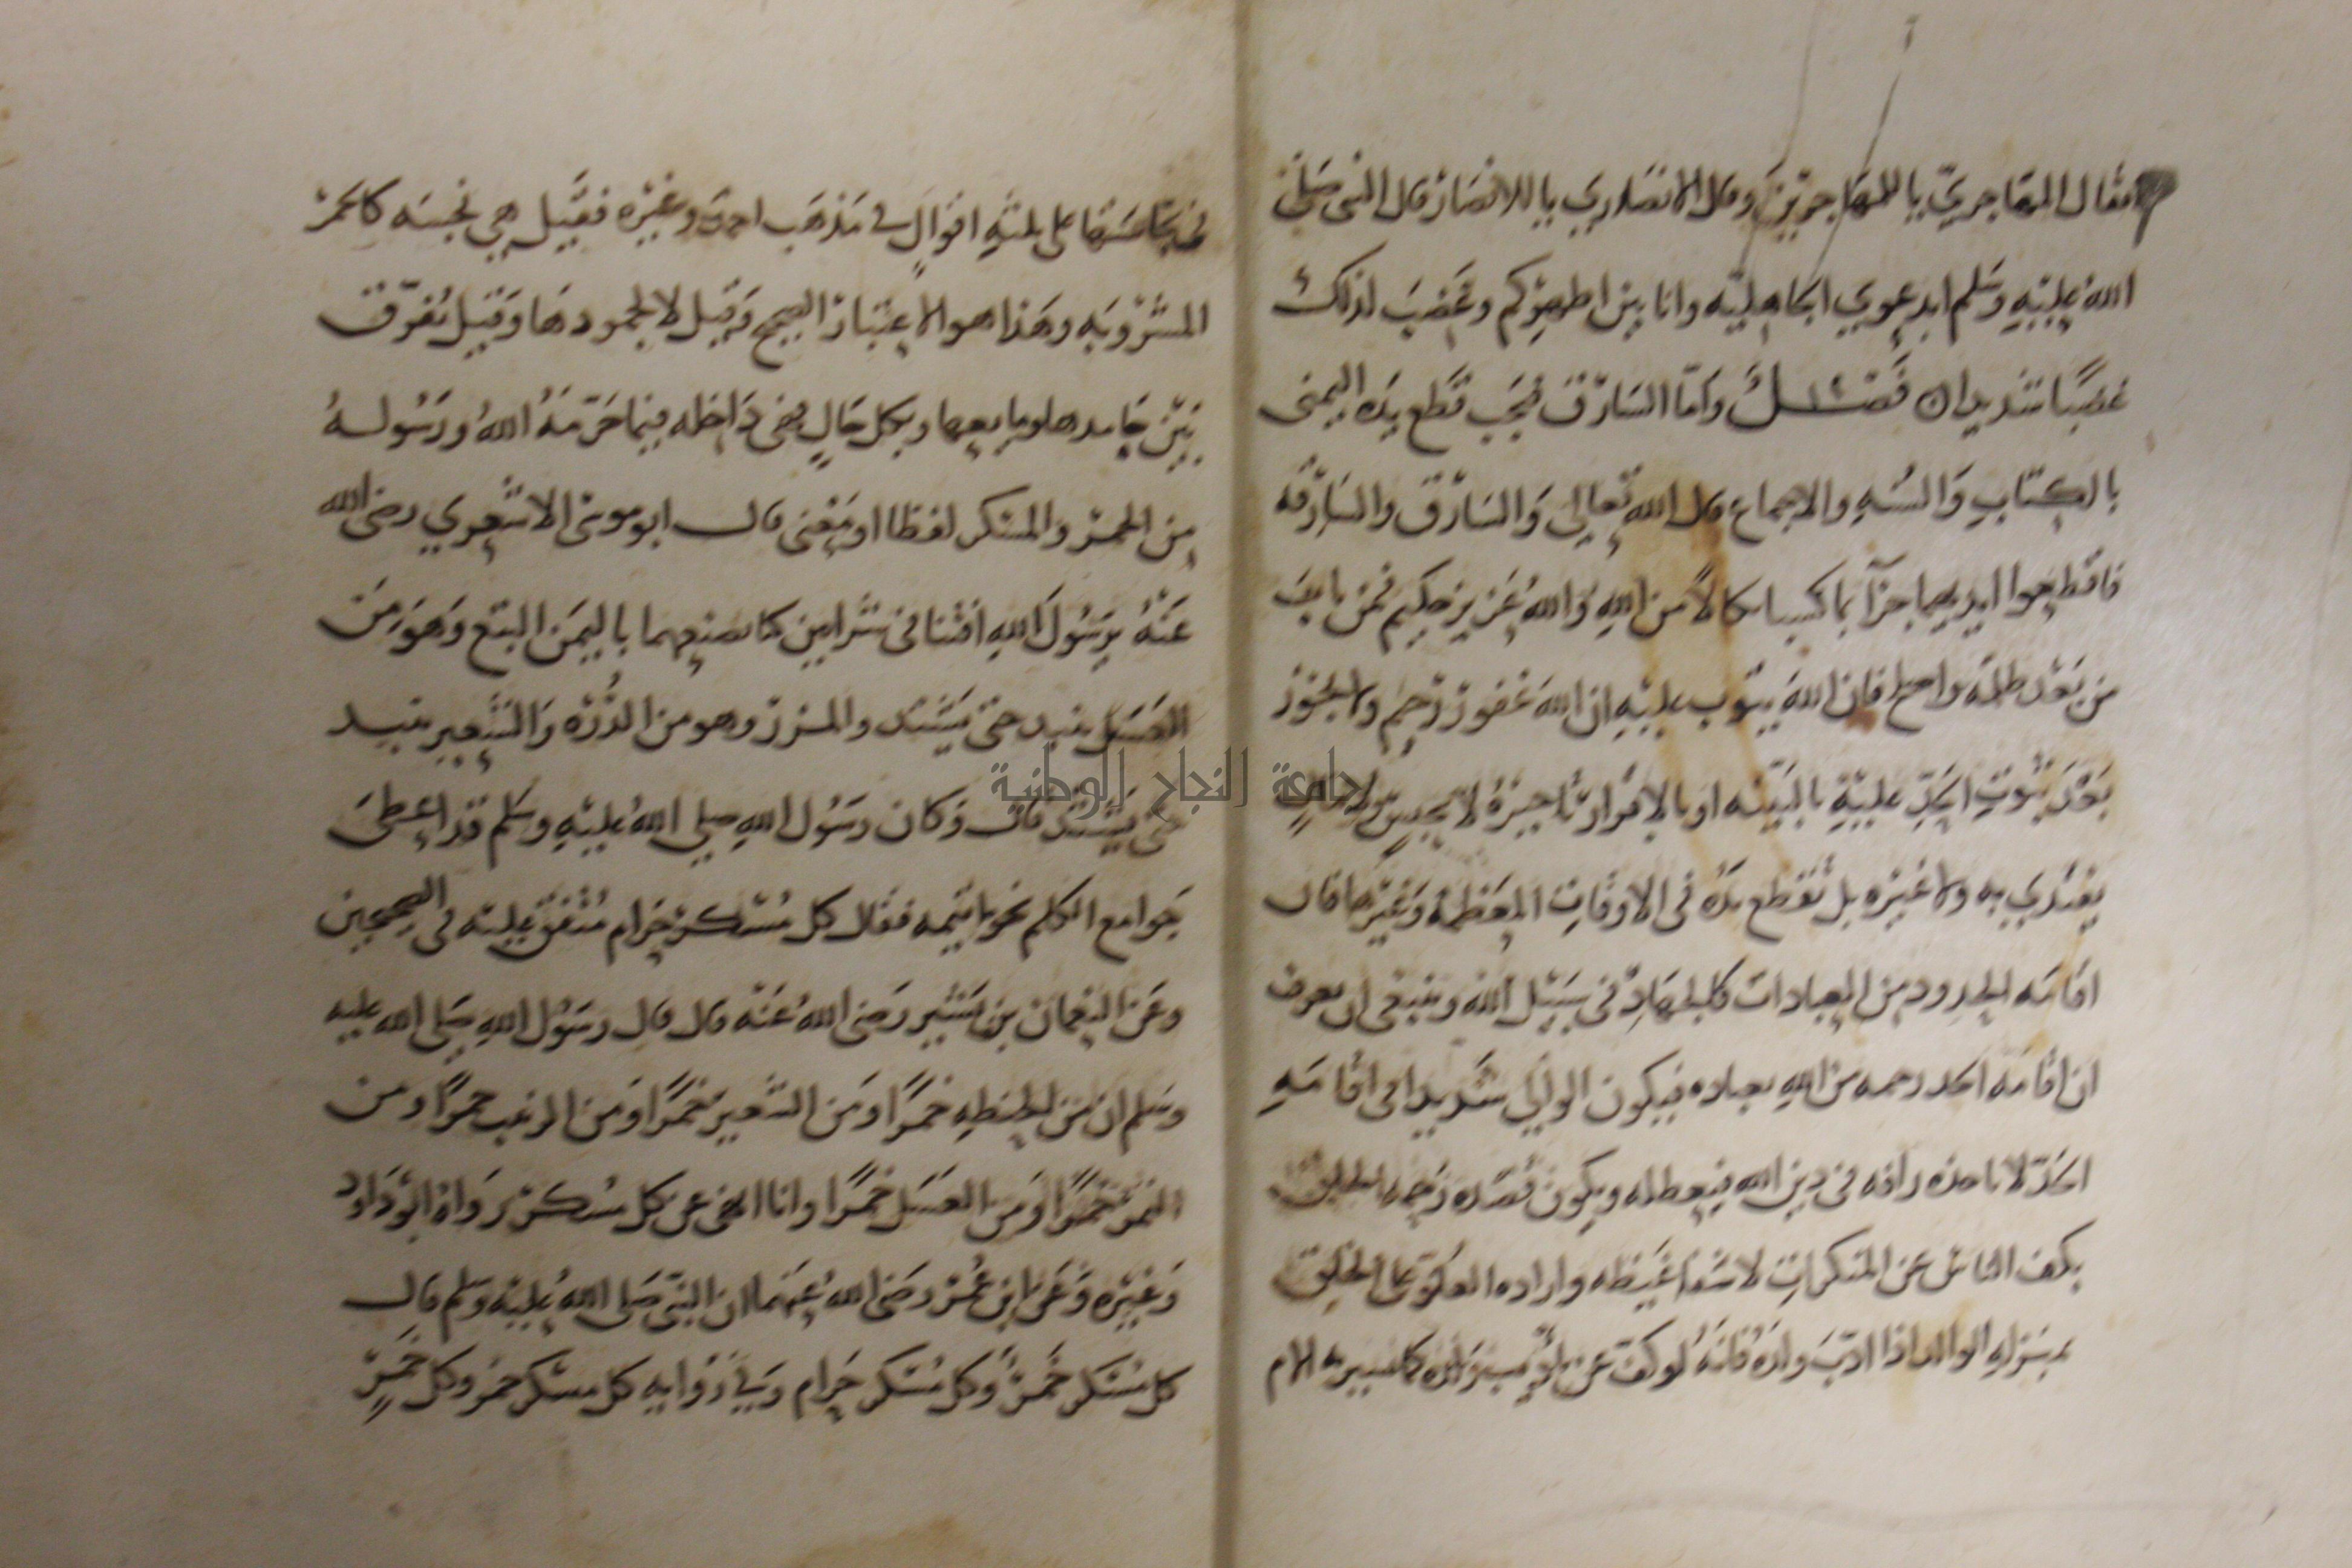 فقال المهاجري يا للمهاجرين وقال الانصاري يا للانصار قال النبي صلى
الله عليه وسلم ابدعوي الجاهليه وانا بين اظهركم وغضب لذلك
غضبا شديدا فصل واما السارق فيجب قطع يده اليمنى
بالكتاب والسنه والاجماع قال الله تعالى والسارق والسارقه
فاقطعوا ايديهما جزآ بما كسبا نكالا من الله والله عزيز حكيم فمن تاب
من بعد ظلمه واصلح فان الله يتوب عليه ان الله غفور رحيم ولا يجوز
بعد ثبوت الحد عليه بالبينه او بالاقرار تاخيره لا بحبس ولا مال
يفتدي به ولا غيره بل تقطع يده في الاوقات المعظمه وغيرها فان
اقامه الحدود من العبادات كالجهاد في سبيل الله وينبغي ان يعرف
ان اقامة الحد رحمه من الله بعباده فيكون الوالي شديدا في اقامه
الحد لا تاخذه رافه في دين الله فيعطله ويكون قصده رحمه الخلق
بكف الناس عن المنكرات لا شفا غيظه واراده العلو على الخلق
بمنزله الوالد اذا ادب ولده فانه لو كف عن تاديب ولده كما تشير به الام
نجاستها على ثلثه اقوال في مذهب احمد وغيره فقيل هي نجسه كالخمر
المشروبه وهذا هو الاعتبار الصحيح وقيل لا لجمودها وقيل يفرق
بين جامدها ومايعها وبكل حال فهي داخله فيما حرمه الله ورسوله
من الخمر والمسكر لفظا او معنى قال ابو موسى الاشعري رضي الله
عنه يرسول الله افتنا في شرابين كنا نصنعهما باليمن البتع وهو من
العسل ينبد حتى يشتد والمزر وهو من الذره والشعير ينبد
حتى يشتد قال وكان رسول الله صلى الله عليه وسلم قد اعطى
جوامع الكلم بخواتيمه فقال كل مسكر حرام متفق عليه في الصحيحين
وعن النعمان بن بشير رضي الله عنه قال قال رسول الله صلى الله عليه
وسلم ان من الحنطه خمرا ومن الشعير خمرا ومن الزبيب خمرا ومن
التمر خمرا ومن العسل خمرا وانا انهى عن كل مسكر رواه ابو داود
وغيره وعن ابن عمر رضي الله عنهما ان النبي صلى الله عليه وسلم قال
كل مسكر خمر وكل مسكر حرام وفي روايه كل مسكر خمر وكل خمر
جامعة النجاح الوطنية